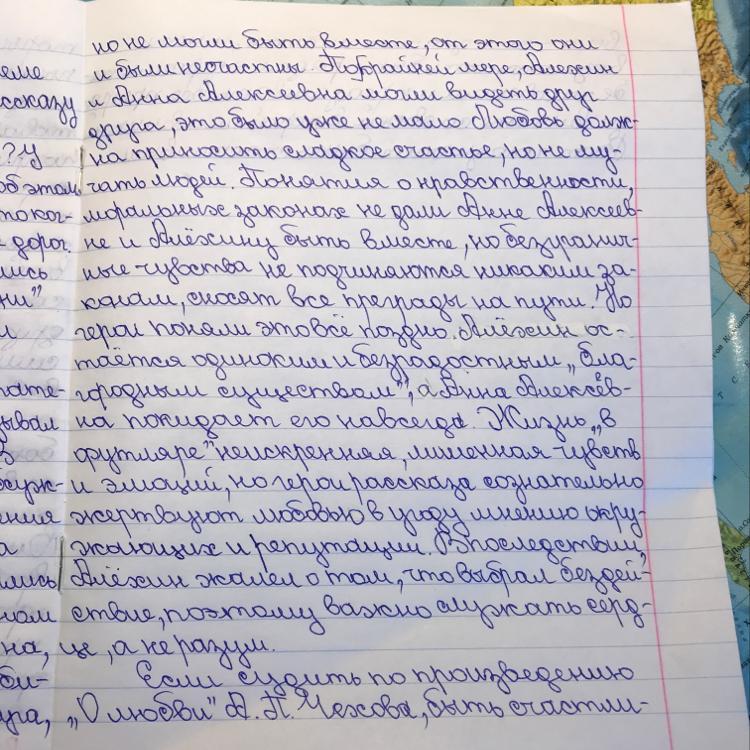 но не могли быть вместе, от этого они
еме и были несчастны. По крайней мере, Алехин
ссказу и Анна Алексеевна могли видеть друг
друга, это было уже не мало. Любовь долж-
? У на приносить сладкое счастье, но не му-
об этом, чать людей. Понятия о нравственности,
моральных законах не дали Анне Алексеев-
дорог. не и Алёхину быть вместе, но безгранич-
лись ные чувства не подчиняются никаким за-
ни" конам, сносят все преграды на пути. Но
и герои поняли это всё поздно. Алёхин ос-
таётся одиноким и безрадостным „бла-
городным существом", а Анна Алексеёв-
ывал на покидает его навсегда. Жизнь „в
з футляре" неискренняя, лишенная чувств
и эмоций, но герои рассказа сознательно
ения жертвуют любовью в угоду мнению окру-
а жающих и репутации. Впоследствии,
лись Алёхин жалел о том, что выбрал бездей-
ном ствие, поэтому важно служать серд-
на, це, а не разум.
би- Если судить по произведению
ра, „О любви" А. П. Чехова, быть счастли-